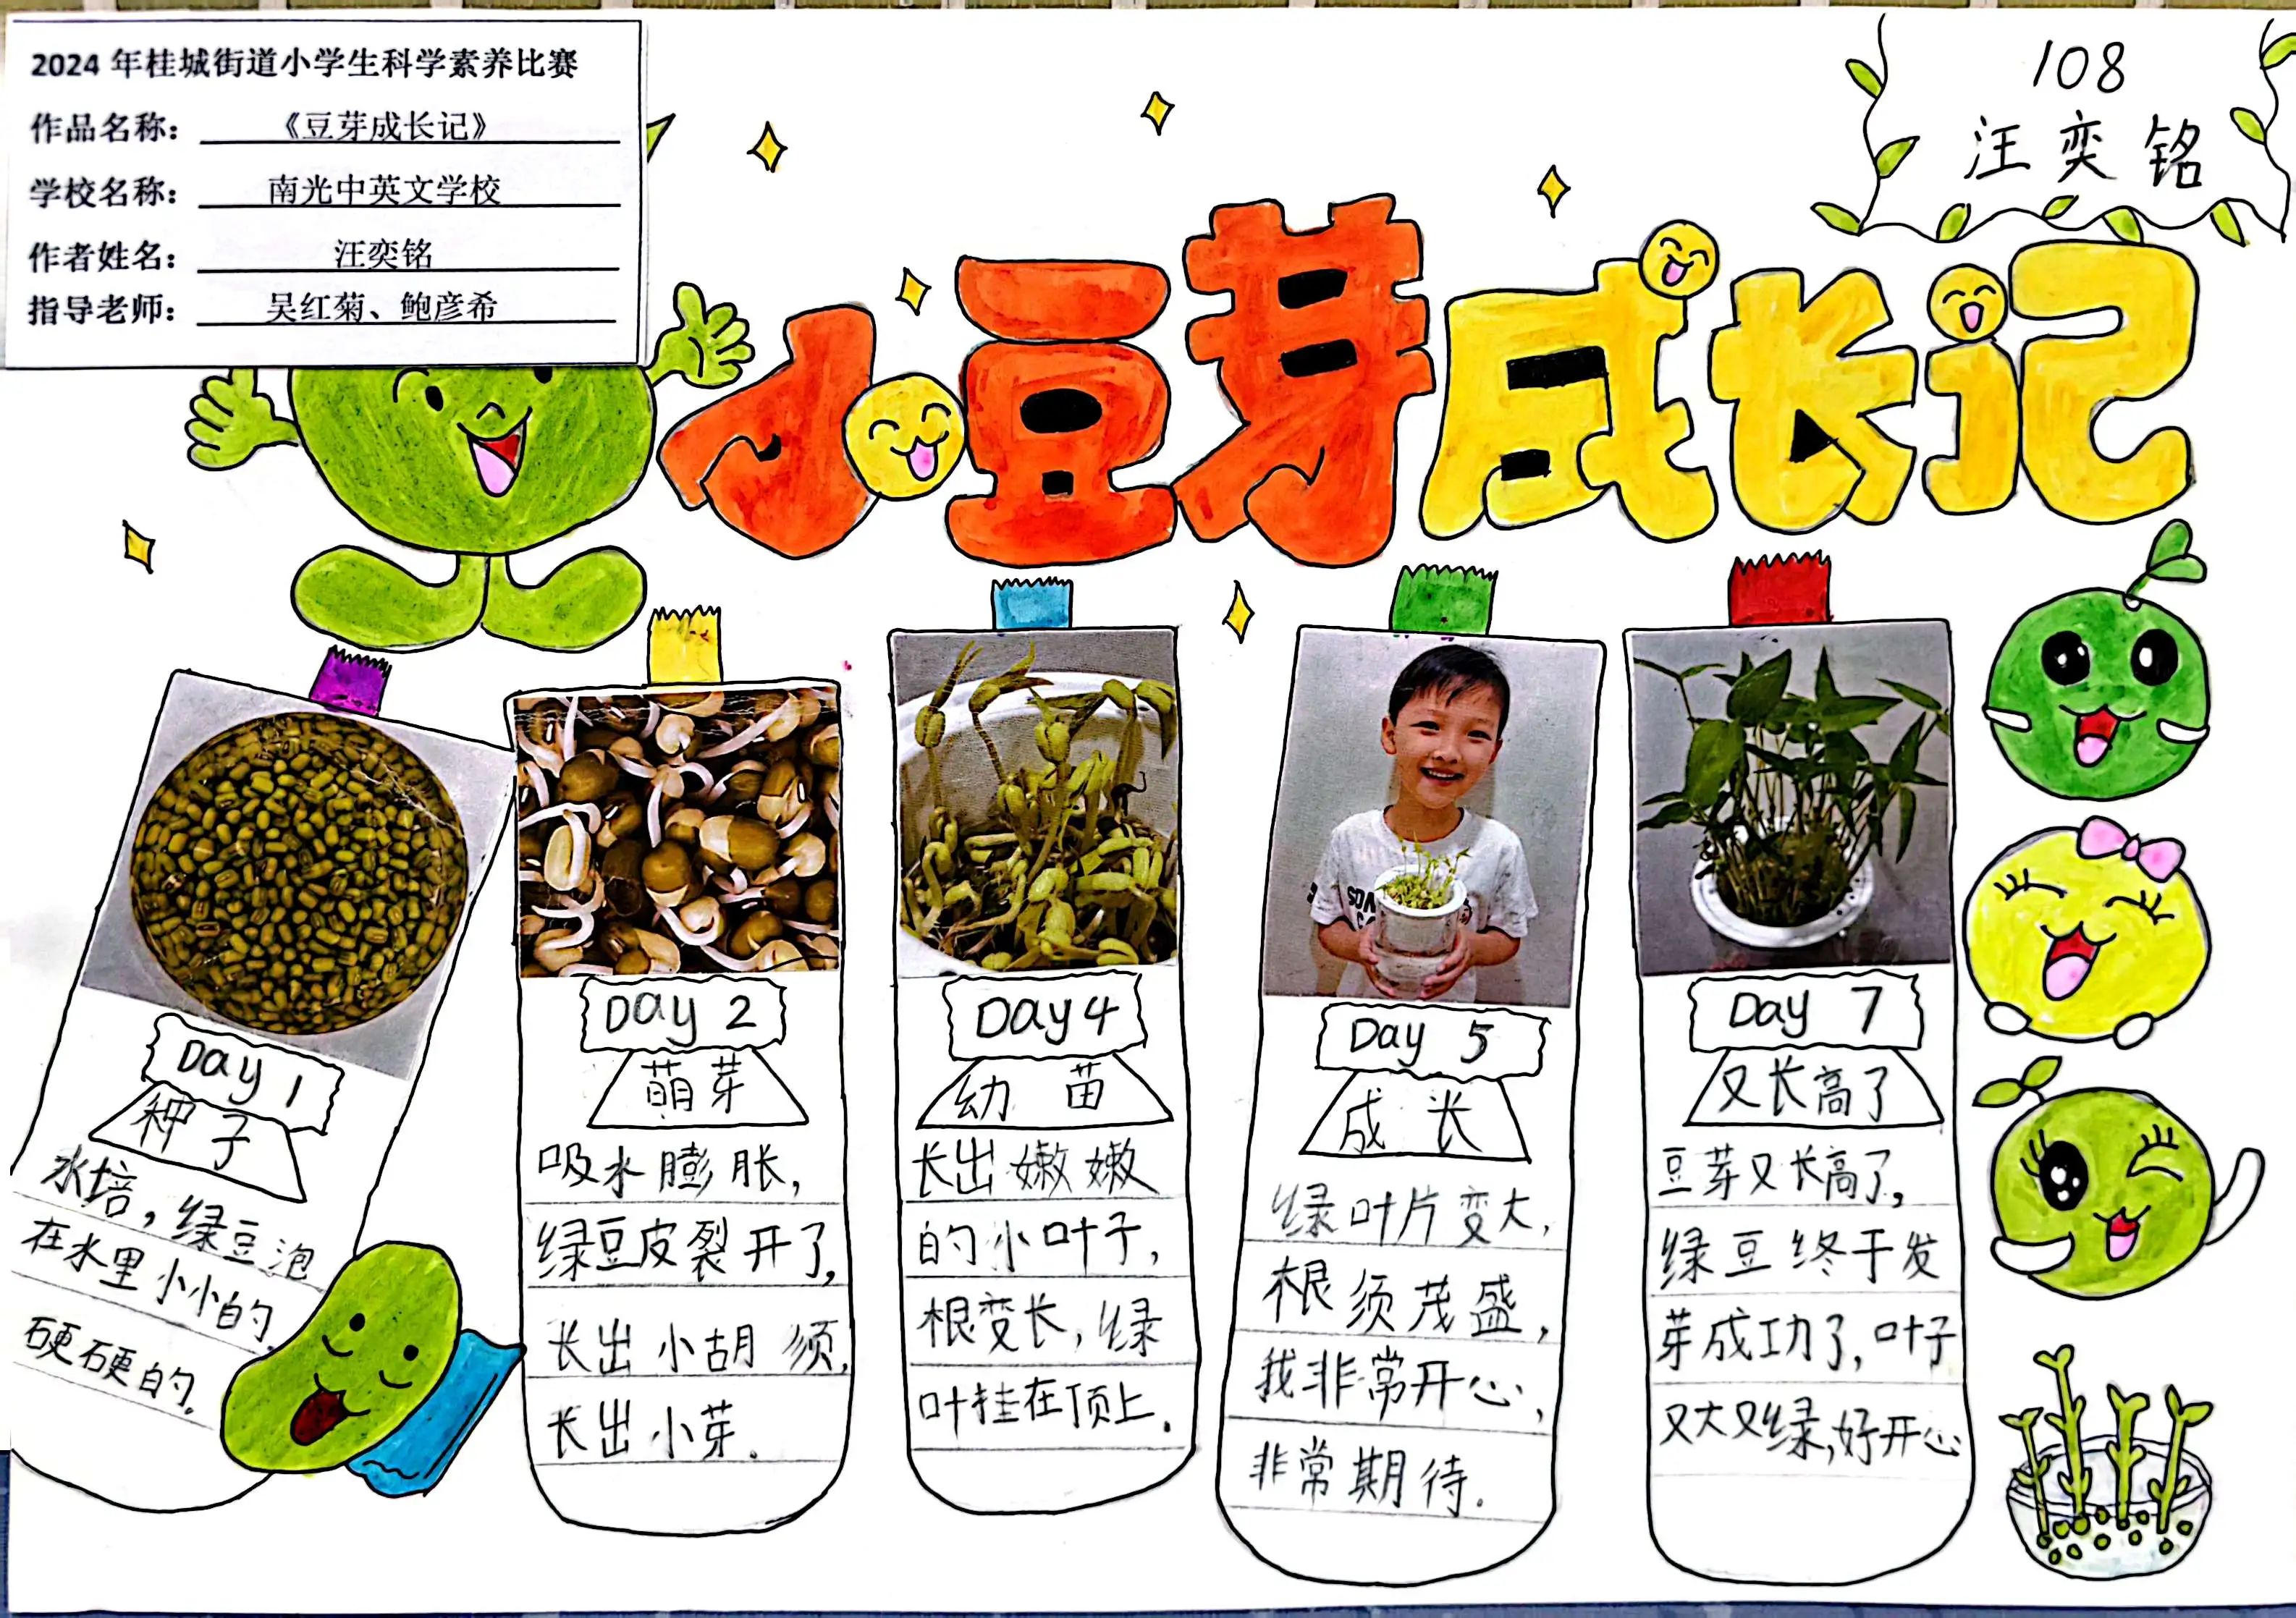 2024 年桂城街道小学生科学素养比赛
作品名称： 《豆芽成长记》
学校名称： 南光中英文学校
作者姓名： 汪奕铭
指导老师： 吴红菊、鲍彦希
108
汪奕铭
小豆芽成长记
Day 1
种子
水培，绿豆泡
在水里小小的，
硬硬的。
Day 2
萌芽
吸水膨胀，
绿豆皮裂开了，
长出小胡须，
长出小芽。
Day 4
幼苗
长出嫩嫩
的小叶子，
根变长，绿
叶挂在顶上。
Day 5
成长
绿叶片变大，
根须茂盛，
我非常开心，
非常期待。
Day 7
又长高了
豆芽又长高了，
绿豆终于发
芽成功了，叶子
又大又绿，好开心